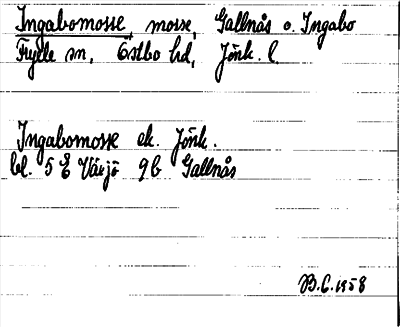 Ingabomosse, mosse, Gallnås o. Ingabo
Fryele sn, Östbo hd, Jönk. l
Ingabomosse ek. Jönk.
bl. 5 E Växjö 9b Gallnås
B.C. 1958